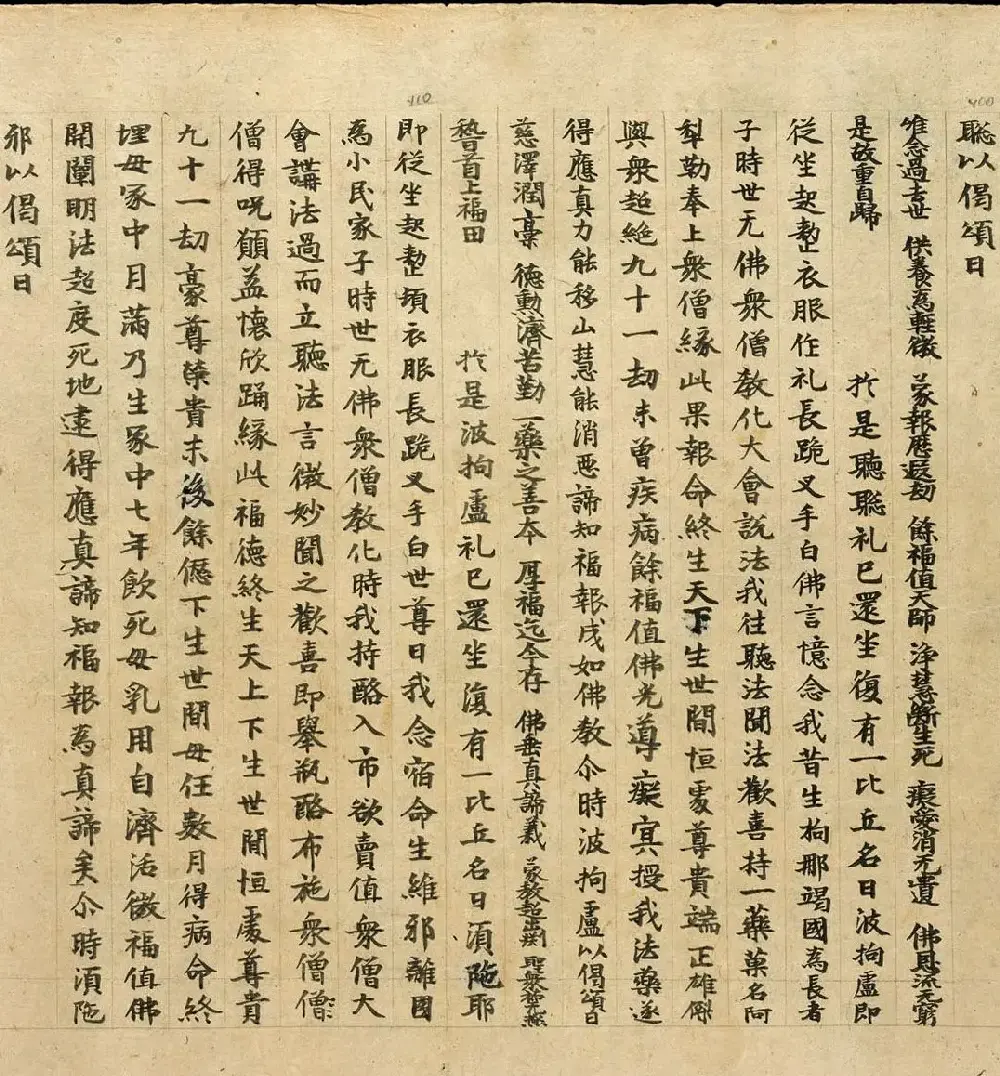 聡以偈頌曰
唯念過去世 供養為輕微 蒙報歷遐劫 餘福值天師 淨慧斷生死 癡愛消无遺 佛恩流无窮
是故重自歸 於是聽聡礼已還坐復有一比丘名曰波拘盧即
從坐起整衣服作礼長跪叉手白佛言憶念我昔生拘那竭國為長者
子時世无佛衆僧教化大會說法我往聽法聞法歡喜持一藥菓名阿
梨勒奉上衆僧緣此果報命終生天下生世間恒處尊貴端正雄傑
與衆超絶九十一劫未曾疾病餘福值佛光導癡冥授我法藥遂
得應真力能移山慧能消惡諦知福報咸如佛教尒時波拘盧以偈頌曰
慈澤潤枯槀 德勳濟苦勤 一藥之善本 厚福迄今存 佛垂真諦義 蒙教超出渕 聖衆
稽首上福田 於是波拘盧礼已還坐復有一比丘名曰須陁耶
即從坐起整頓衣服長跪叉手白世尊曰我念宿命生維邪離國
為小民家子時世无佛衆僧教化時我持酪入市欲賣值衆僧大
會講法過而立聽法言微妙聞之歡喜即舉瓶酪布施衆僧僧
僧得呪願益懷欣踊緣此福德終生天上下生世間恒處尊貴
九十一劫豪尊榮貴末後餘僁下生世間母任數月得病命終
埋母冢中月滿乃生冢中七年飲死母乳用自濟活微福值佛
開闡明法超度死地逮得應真諦知福報為真諦矣尒時須陁
邪以偈頌曰
410
400